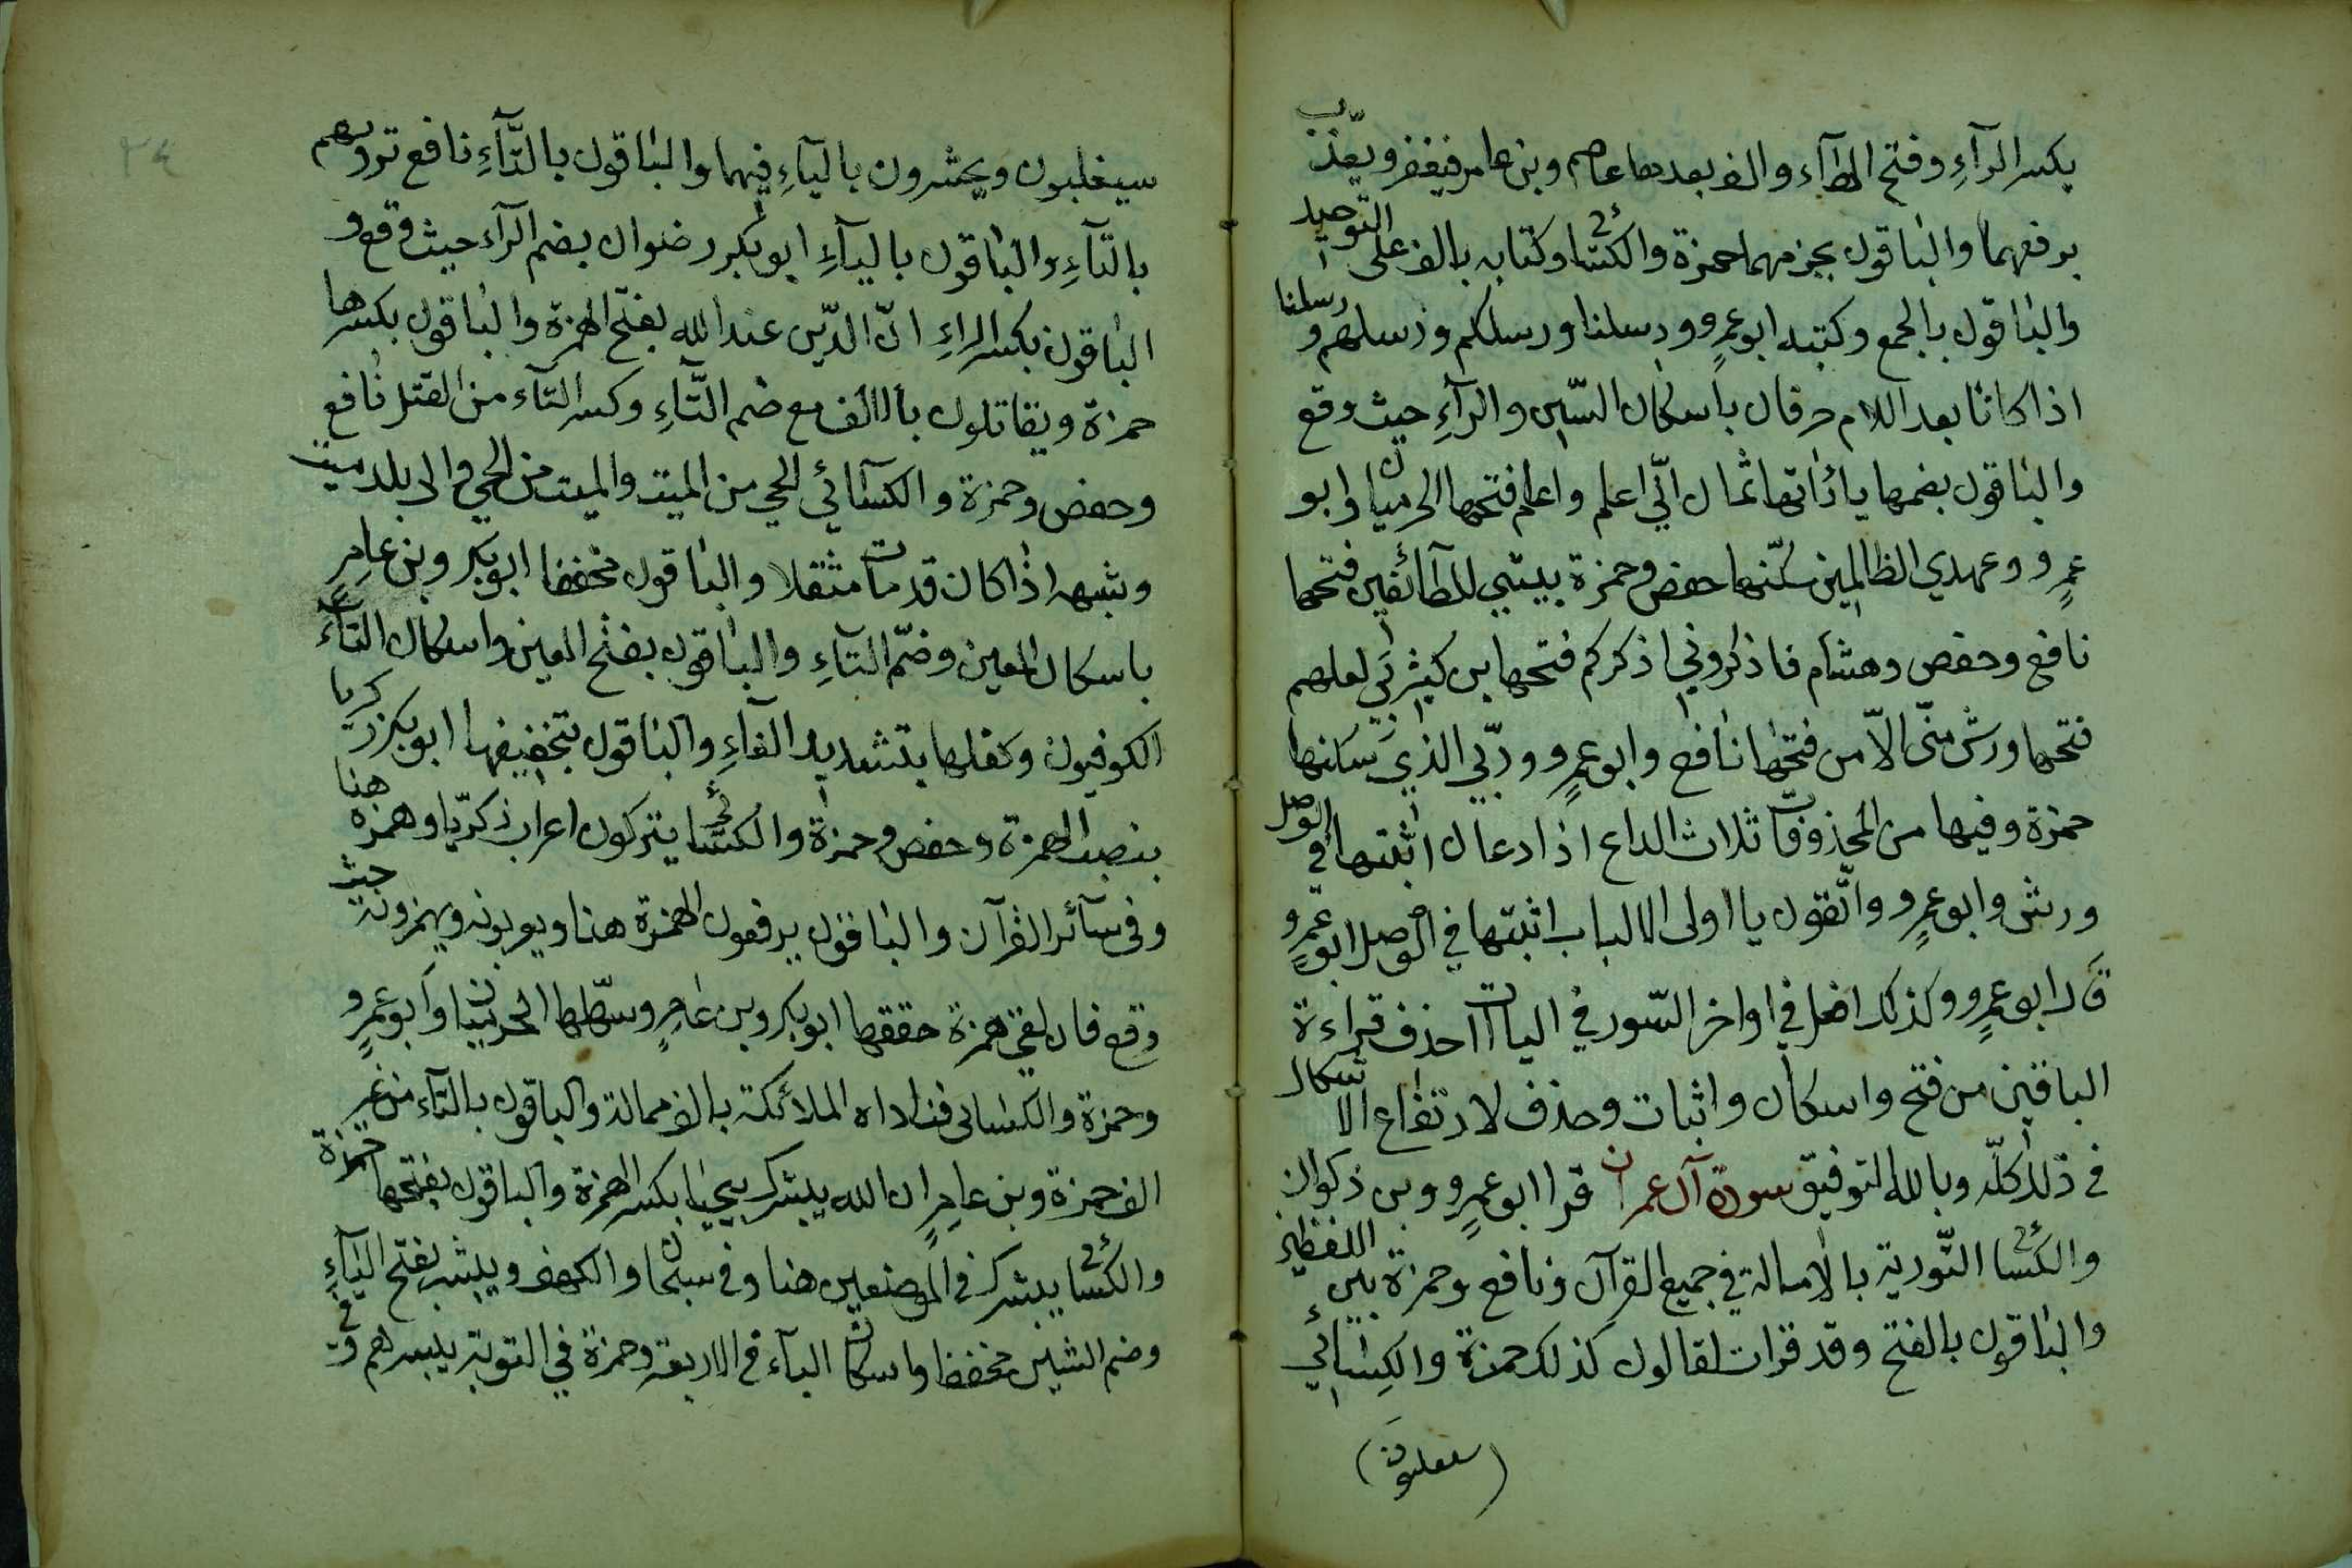 بكسر الرآءِ وفتح الهآء والف بعدها عاصم وبن عامر فيغفر ويعذّب
برفعهما والباقون بجزمهما حمزة والكسائي وكتابه بالف على التوحيد
والباقون بالجمع وكتبه ابو عمرٍو ورسلنا ورسلكم ورسلهم ورسلنا
اذا كانا بعد اللام حرفان باسكان السّين والرآءِ حيث وقع
والباقون بضمها ياءاتها ثمان انّي اعلم واعلم فتحها الحرميان وابو
عمرٍو وعهدي الظالمين سكّنها حفص وحمزة بيتي للطآئفين فتحها
نافع وحفص وهشام فاذكروني اذكركم فتحها بن كثير بي لعلهم
فتحها ورش منّي الاّ من فتحها نافع وابو عمرٍو وربّي الذي سكنها
حمزة وفيها من المحذوفات ثلاث الداع اذا دعان اثبتها في الوصل
ورش وابو عمرٍو واتّقون يا اولى الالباب اثبتها في الوصل ابو عمرٍو
قال ابو عمرٍو وكذلك افعل في اواخر السّور في الياات احذف قراءة
الباقين من فتح واسكان واثبات وحذف لارتفاع الاشكال
في ذلك كلّه وبالله التوفيق سورة آل عمران قرا ابو عمرٍو وبن ذكوان
والكسائي التّورية بالامالة في جميع القرآن ونافع وحمزة بين اللفظين
والباقون بالفتح وقد قرات لقالون كذلك حمزة والكسائي
(سيغلبون)
سيغلبون ويحشرون باليآءِ فيهما والباقون بالتّآءِ نافع ترونهم
بالتآءِ والباقون باليآءِ ابو بكر رضوان بضم الرآء حيث وقع و
الباقون بكسر الراءِ انّ الدّين عند الله بفتح الهمزة والباقون بكسرها
حمزة ويقاتلون بالالف مع ضم التّآءِ وكسر التآء من القتل نافع
وحفص وحمزة والكسآئي الحي من الميت والميت من الحي والى بلد ميت
وشبهه اذا كان قد مات مثقلا والباقون مخففا ابو بكر وبن عامرٍ
باسكان العين وضمّ التآءِ والباقون بفتح العين واسكان التآء
الكوفيون وكفلها بتشديد الفآءِ والباقون بتخفيفها ابو بكر زكريا
بنصب الهمزة وحفص وحمزة والكسائي يتركون اعراب زكريّا وهمزه هنا
وفى سآئر القرآن والباقون يرفعون الهمزة هنا ويعربونه ويهمزونه حيث
وقع فان لقى همزة حققها ابو بكر وبن عامرٍ وسهّلها الحرميان وابو عمرٍو
وحمزة والكسائى فناداه الملائكة بالف ممالة والباقون بالتآء من غير
الف حمزة وبن عامرٍ ان الله يبشرك بيحيا بكسر الهمزة والباقون بفتحها حمزة
والكسائي يبشرك في الموضعين هنا وفى سبحان والكهف ويبشر بفتح اليآءِ
وضم الشين مخففا واسكان البآء في الاربعة وحمزة في التوبة يبشرهم وفي